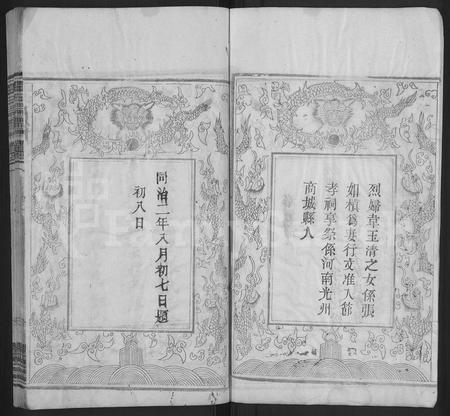 烈婦韋玉清之女係張
如楨爲妻行文准入節
孝祠享祭係河南光州
商城縣人
同治二年八月初七日題
初八日